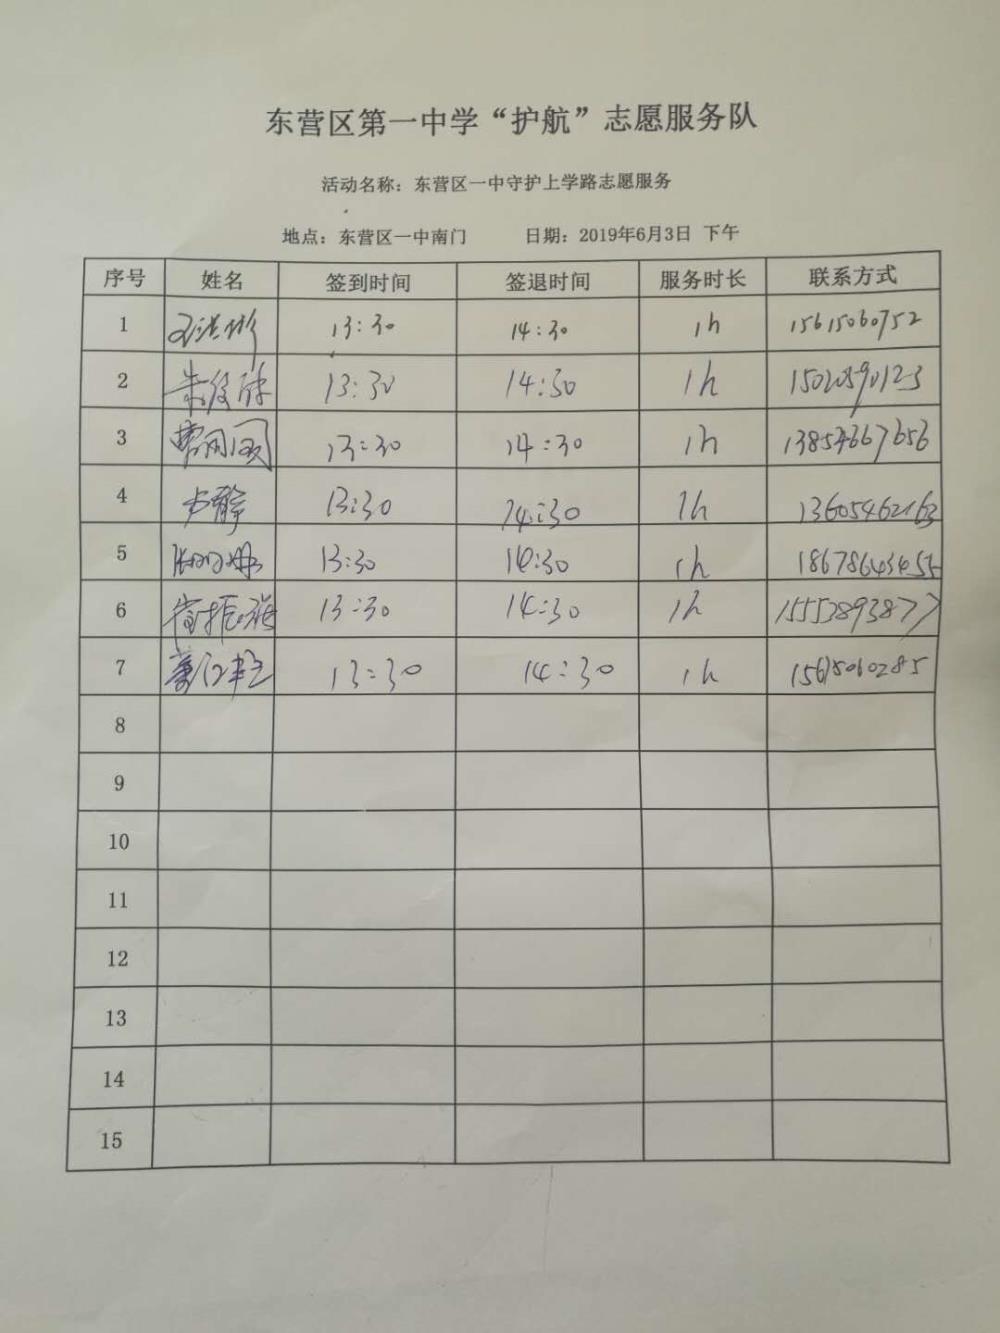 东营区第一中学“护航”志愿服务队
活动名称：东营区一中守护上学路志愿服务
地点：东营区一中南门 日期：2019年6月3日 下午
序号 姓名 签到时间 签退时间 服务时长 联系方式
1 13:30 14:30 1h 15615060752
2 13:30 14:30 1h
3 13:30 14:30 1h 13854667656
4 卢静 13:30 14:30 1h 13605462163
5 13:30 14:30 1h
6 13:30 14:30 1h 15553893877
7 13:30 14:30 1h 15615060285
8
9
10
11
12
13
14
15